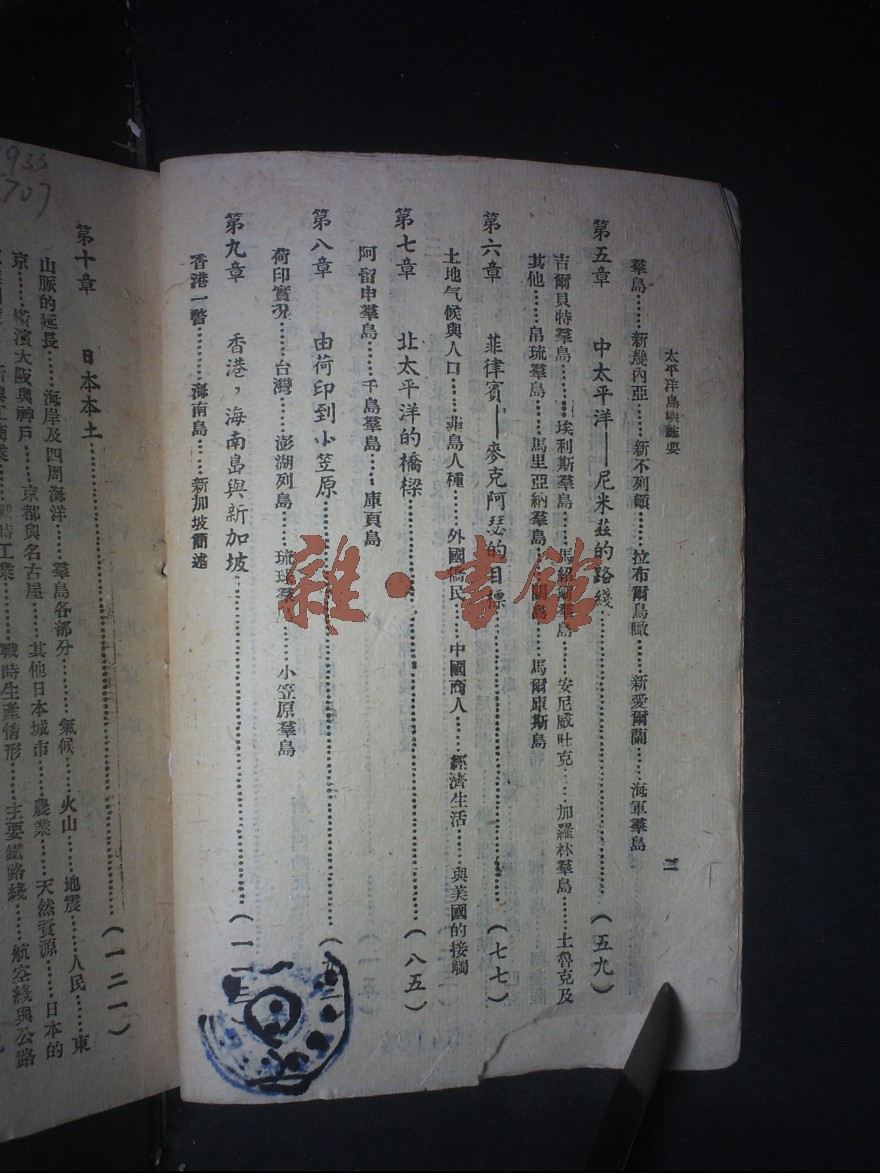 太平洋島嶼誌要
二
羣島……新幾內亞……新不列顛……拉布爾鳥瞰……新愛爾蘭……海軍羣島
第五章　中太平洋——尼米茲的路綫……(五九)
吉爾貝特羣島……埃利斯羣島……馬紹爾羣島……安尼威吐克……加羅林羣島……土魯克及
其他……帛琉羣島……馬里亞納羣島……關島……馬爾庫斯島
第六章　菲律賓——麥克阿瑟的目標……(七七)
土地气候與人口……菲島人種……外國僑民……中國商人……經濟生活……與美國的接觸
第七章　北太平洋的橋樑……(八五)
阿留申羣島……千島羣島……庫頁島
第八章　由荷印到小笠原……(九
荷印實況……台灣……澎湖列島……琉球羣……小笠原羣島
第九章　香港，海南島與新加坡……(一一三)
香港一瞥……海南島……新加坡簡述
第十章　日本本土……(一二一)
山脈的延長……海岸及四周海洋……羣島各部分……氣候……火山……地震……人民……東
京……橫濱大阪與神戶……京都與名古屋……其他日本城市……農業……天然資源……日本的
工業……戰時生產情形……主要鐵路綫……航空綫與公路
雜·書館
933
707